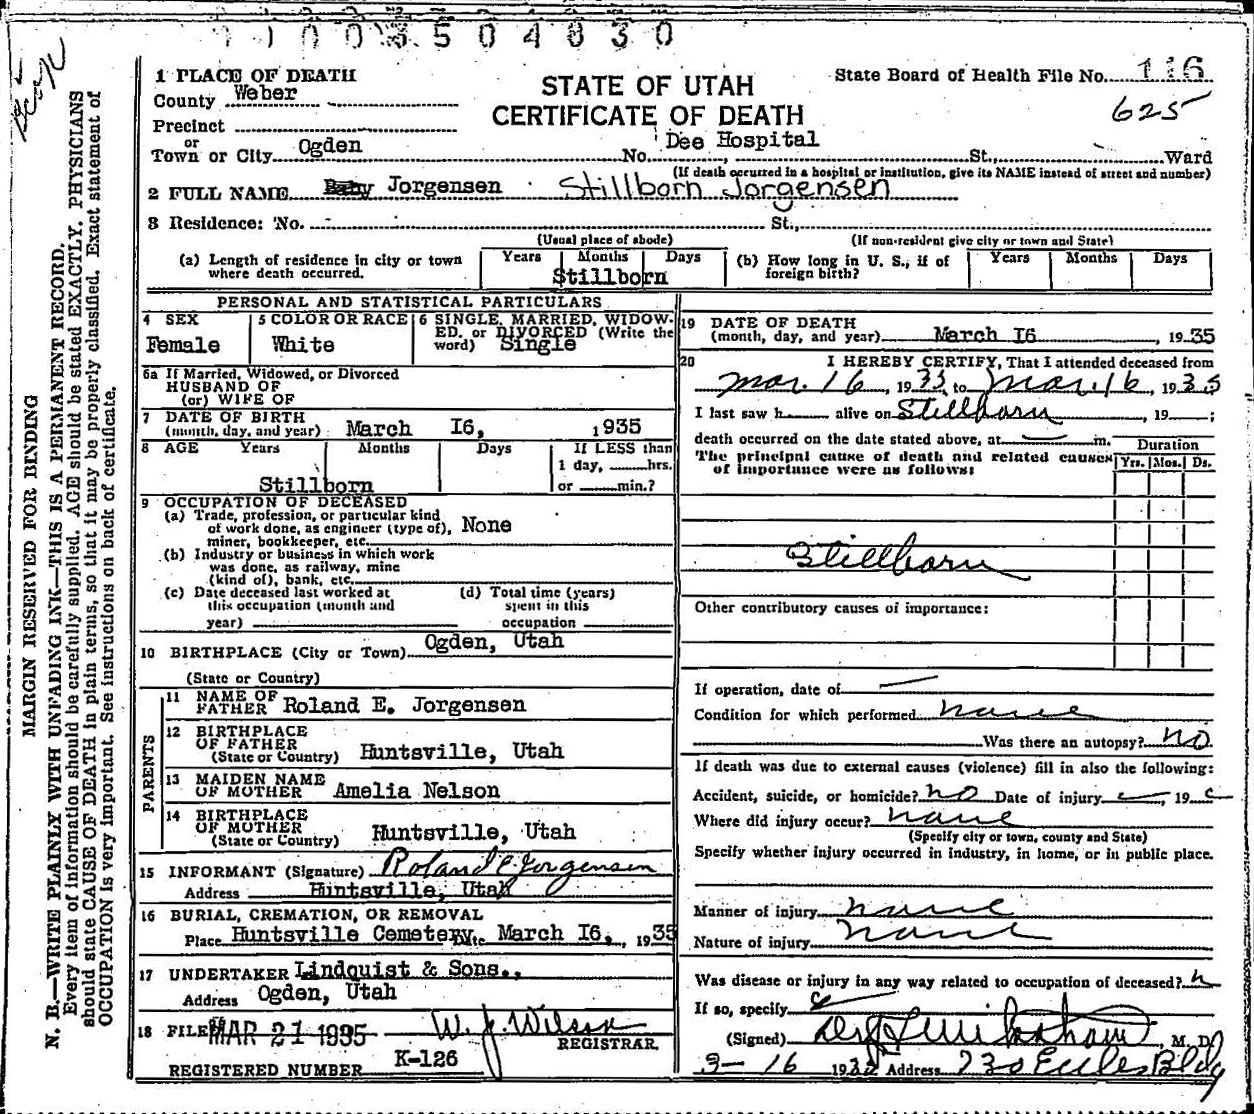 11003504630
1 PLACE OF DEATH
County Weber
Precinct
or
Town or City Ogden
STATE OF UTAH
CERTIFICATE OF DEATH
State Board of Health File No. 116
625
Dee Hospital
No. St., Ward
(If death occurred in a hospital or institution, give its NAME instead of street and number)
2 FULL NAME Baby Jorgensen Stillborn Jorgensen
3 Residence: No. St.,
(Usual place of abode) (If non-resident give city or town and State)
(a) Length of residence in city or town where death occurred. Years Months Days
Stillborn
(b) How long in U. S., if of foreign birth? Years Months Days
PERSONAL AND STATISTICAL PARTICULARS
4 SEX
Female
5 COLOR OR RACE
White
6 SINGLE, MARRIED, WIDOW-
ED, or DIVORCED (Write the
word) Single
6a If Married, Widowed, or Divorced
HUSBAND OF
(or) WIFE OF
7 DATE OF BIRTH
(month, day, and year) March I6, 1935
8 AGE Years Months Days If LESS than
1 day, hrs.
or min.?
Stillborn
9 OCCUPATION OF DECEASED
(a) Trade, profession, or particular kind
of work done, as engineer (type of), None
miner, bookkeeper, etc.
(b) Industry or business in which work
was done, as railway, mine
(kind of), bank, etc.
(c) Date deceased last worked at
this occupation (month and
year)
(d) Total time (years)
spent in this
occupation
10 BIRTHPLACE (City or Town) Ogden, Utah
(State or Country)
PARENTS
11 NAME OF
FATHER Roland E. Jorgensen
12 BIRTHPLACE
OF FATHER
(State or Country) Huntsville, Utah
13 MAIDEN NAME
OF MOTHER Amelia Nelson
14 BIRTHPLACE
OF MOTHER
(State or Country) Huntsville, Utah
15 INFORMANT (Signature) Roland E Jorgensen
Address Huntsville, Utah
16 BURIAL, CREMATION, OR REMOVAL
Place Huntsville Cemetery Date March I6, 1935
17 UNDERTAKER Lindquist & Sons.,
Address Ogden, Utah
18 FILED MAR 21 1935 W. J. Wilson
REGISTRAR.
REGISTERED NUMBER K-126
19 DATE OF DEATH
(month, day, and year) March I6, 1935
20 I HEREBY CERTIFY, That I attended deceased from
Mar. 16, 1935 to Mar. 16, 1935
I last saw h alive on Stillborn, 19 ;
death occurred on the date stated above, at m.
The principal cause of death and related causes
of importance were as follows:
Duration
Yrs. Mos. Ds.
Stillborn
Other contributory causes of importance:
If operation, date of
Condition for which performed none
Was there an autopsy? no
If death was due to external causes (violence) fill in also the following:
Accident, suicide, or homicide? no Date of injury , 19
Where did injury occur? none
(Specify city or town, county and State)
Specify whether injury occurred in industry, in home, or in public place.
Manner of injury none
Nature of injury none
Was disease or injury in any way related to occupation of deceased?
If so, specify
(Signed) M. D.
3-16 1935 Address 730 Eccles Bldg
MARGIN RESERVED FOR BINDING
N. B.—WRITE PLAINLY WITH UNFADING INK—THIS IS A PERMANENT RECORD.
Every item of information should be carefully supplied. AGE should be stated EXACTLY. PHYSICIANS
should state CAUSE OF DEATH in plain terms, so that it may be properly classified. Exact statement of
OCCUPATION is very important. See instructions on back of certificate.